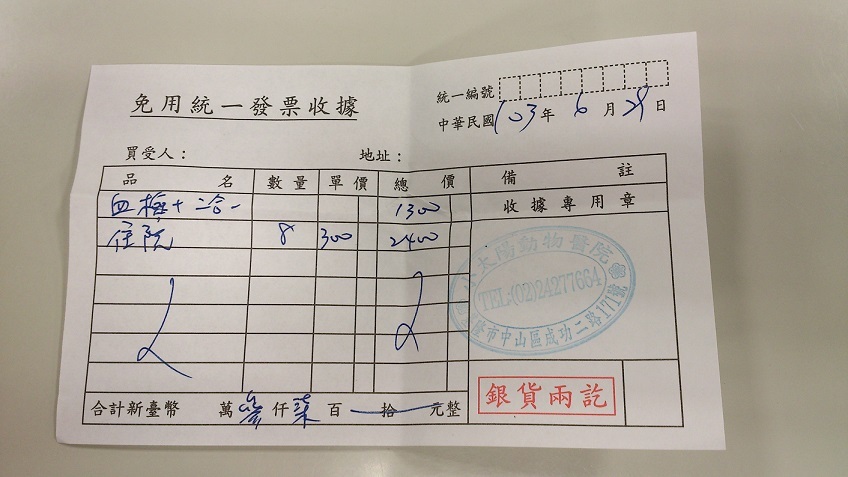 免用統一發票收據
統一編號
中華民國 103 年 6 月 28 日
買受人： 地址：
品名 數量 單價 總價 備註
收據專用章
血檢+二合一 1300
住院 8 300 2400
太陽動物醫院
TEL:(02)24277664
隆市中山區成功二路171號
合計新臺幣 萬 參 仟 柒 百 拾 元整
銀貨兩訖